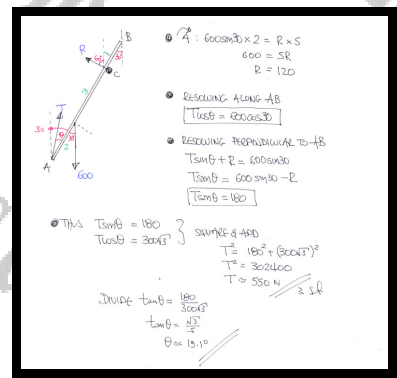 A : 600sin30 × 2 = R × 5
600 = 5R
R = 120
RESOLVING ALONG AB
Tcosθ = 600cos30
RESOLVING PERPENDICULAR TO AB
Tsinθ + R = 600sin30
Tsinθ = 600sin30 - R
Tsinθ = 180
B
R
60
30
C
3
T
30
θ
30
2
A
600
THUS Tsinθ = 180
Tcosθ = 300√3
} SQUARE & ADD
T² = 180² + (300√3)²
T² = 302400
T ≈ 550 N
3 sf
DIVIDE tanθ = 180/300√3
tanθ = √3/5
θ ≈ 19.1°